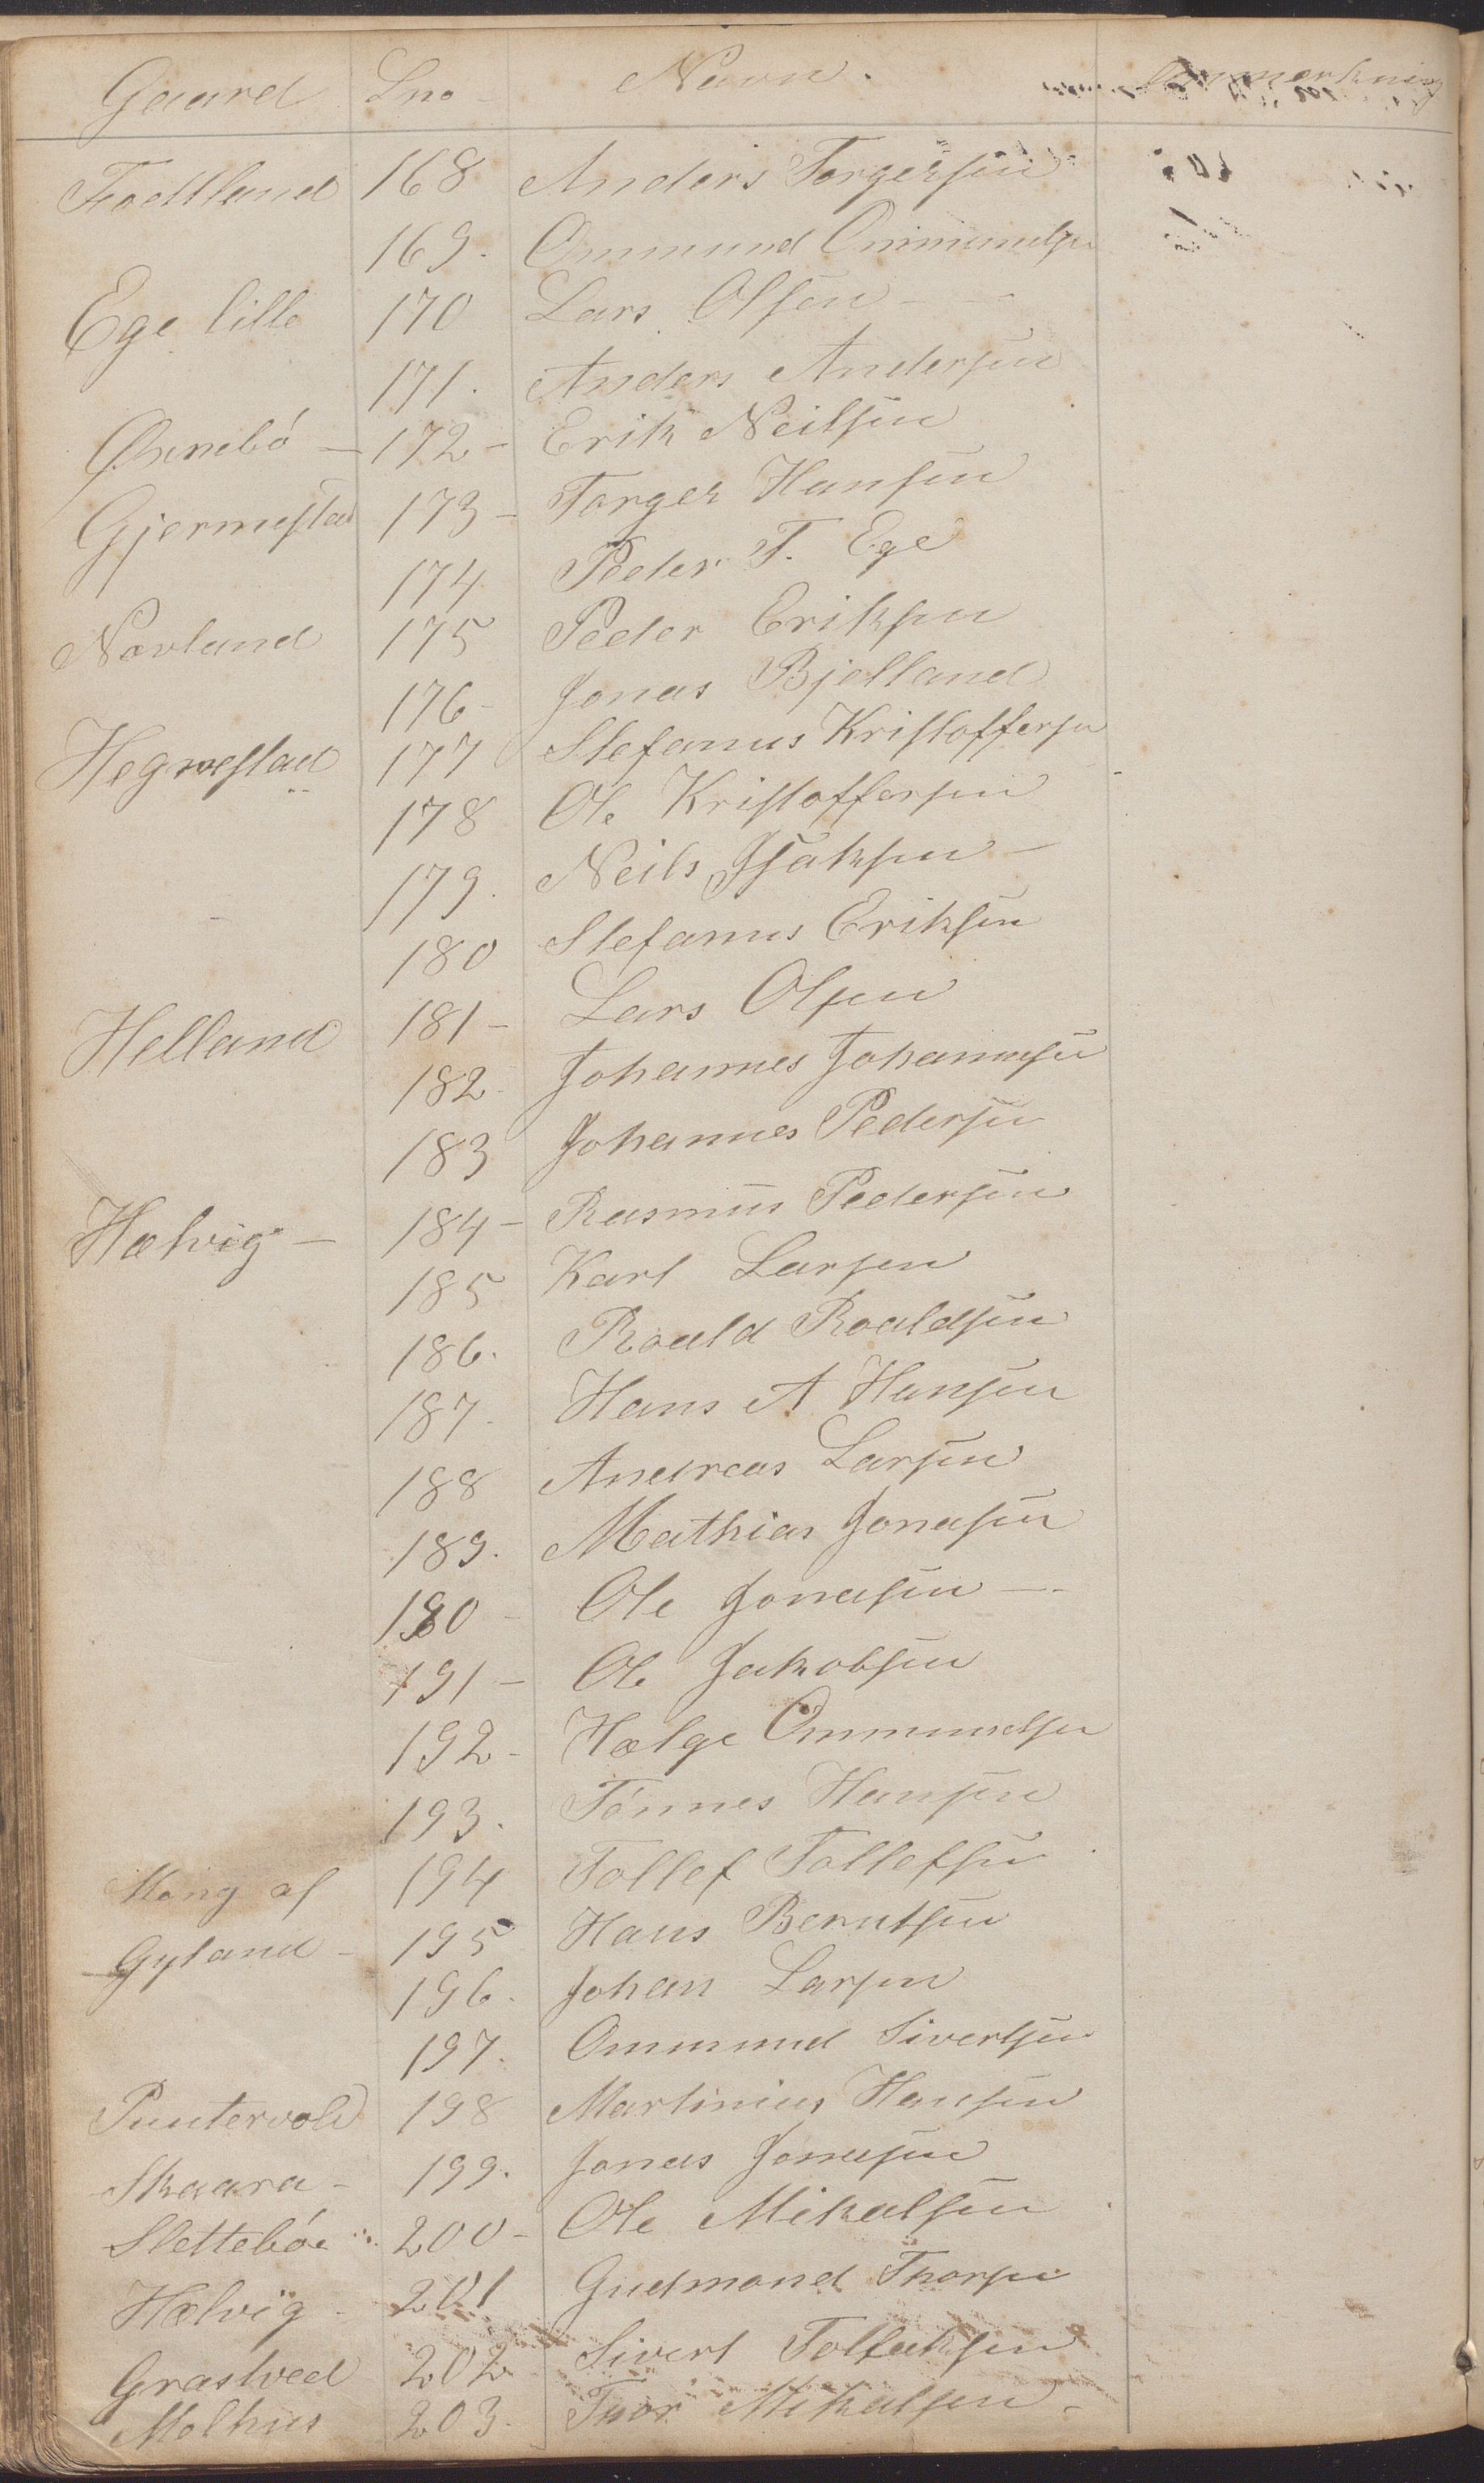 Gaard Lno Navn. Anmerkning
Fodtland 168 Anders Torgersen
169. Ommund Ommundsen
Ege lille 170 Lars Olsen
171. Anders Andersen
Øxnebö 172 - Erik Neilsen
Gjermestad 173 - Torger Hansen
174 Peder T. Ege
Novland 175 Peder Eriksen
176 - Jonas Bjelland
Hegrestad 177 Stefanus Kristoffersen
178 Ole Kristoffersen
179. Neils Isaksen
180 Stefanus Eriksen
Helland 181 - Lars Olsen
182 Johannes Johannesen
183 Johannes Pedersen
Hælvig - 184 - Rasmus Pedersen
185 Karl Larsen
186. Roald Roaldsen
187. Hans A Hansen
188 Andreas Larsen
189. Mathias Jonasen
190 - Ole Jonasen
191 - Ole Jakobsen
192 - Hælge Ommundsen
193. Tönnes Hansen
Mong af 194 Tollef Tollefsen
Gyland - 195 Hans Berntsen
196. Johan Larsen
197. Ommund Sivertsen
Puntervold 198 Martinius Hansen
Skaara - 199. Jonas Jonasen
Sletteböe 200 - Ole Mikalsen
Hælvig - 201 Gudmond Thorsen
Grastveed 202 Sivert Tolleksen
Molhus 203. Thor Mikalsen -